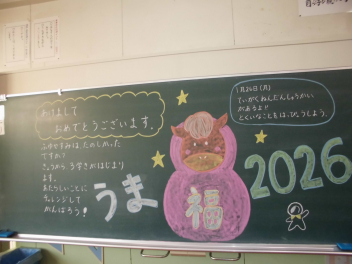 あけまして
おめでとうございます。
ふゆやすみは、たのしかった
ですか?
きょうから、3学きがはじまり
ます。
あたらしいことに
チャレンジして
がんばろう!
うま
福
2026
1月26日(月)
ていがくねんたんじょうかい
があるよ!!
とくいなことをは、ぴょうしよう。